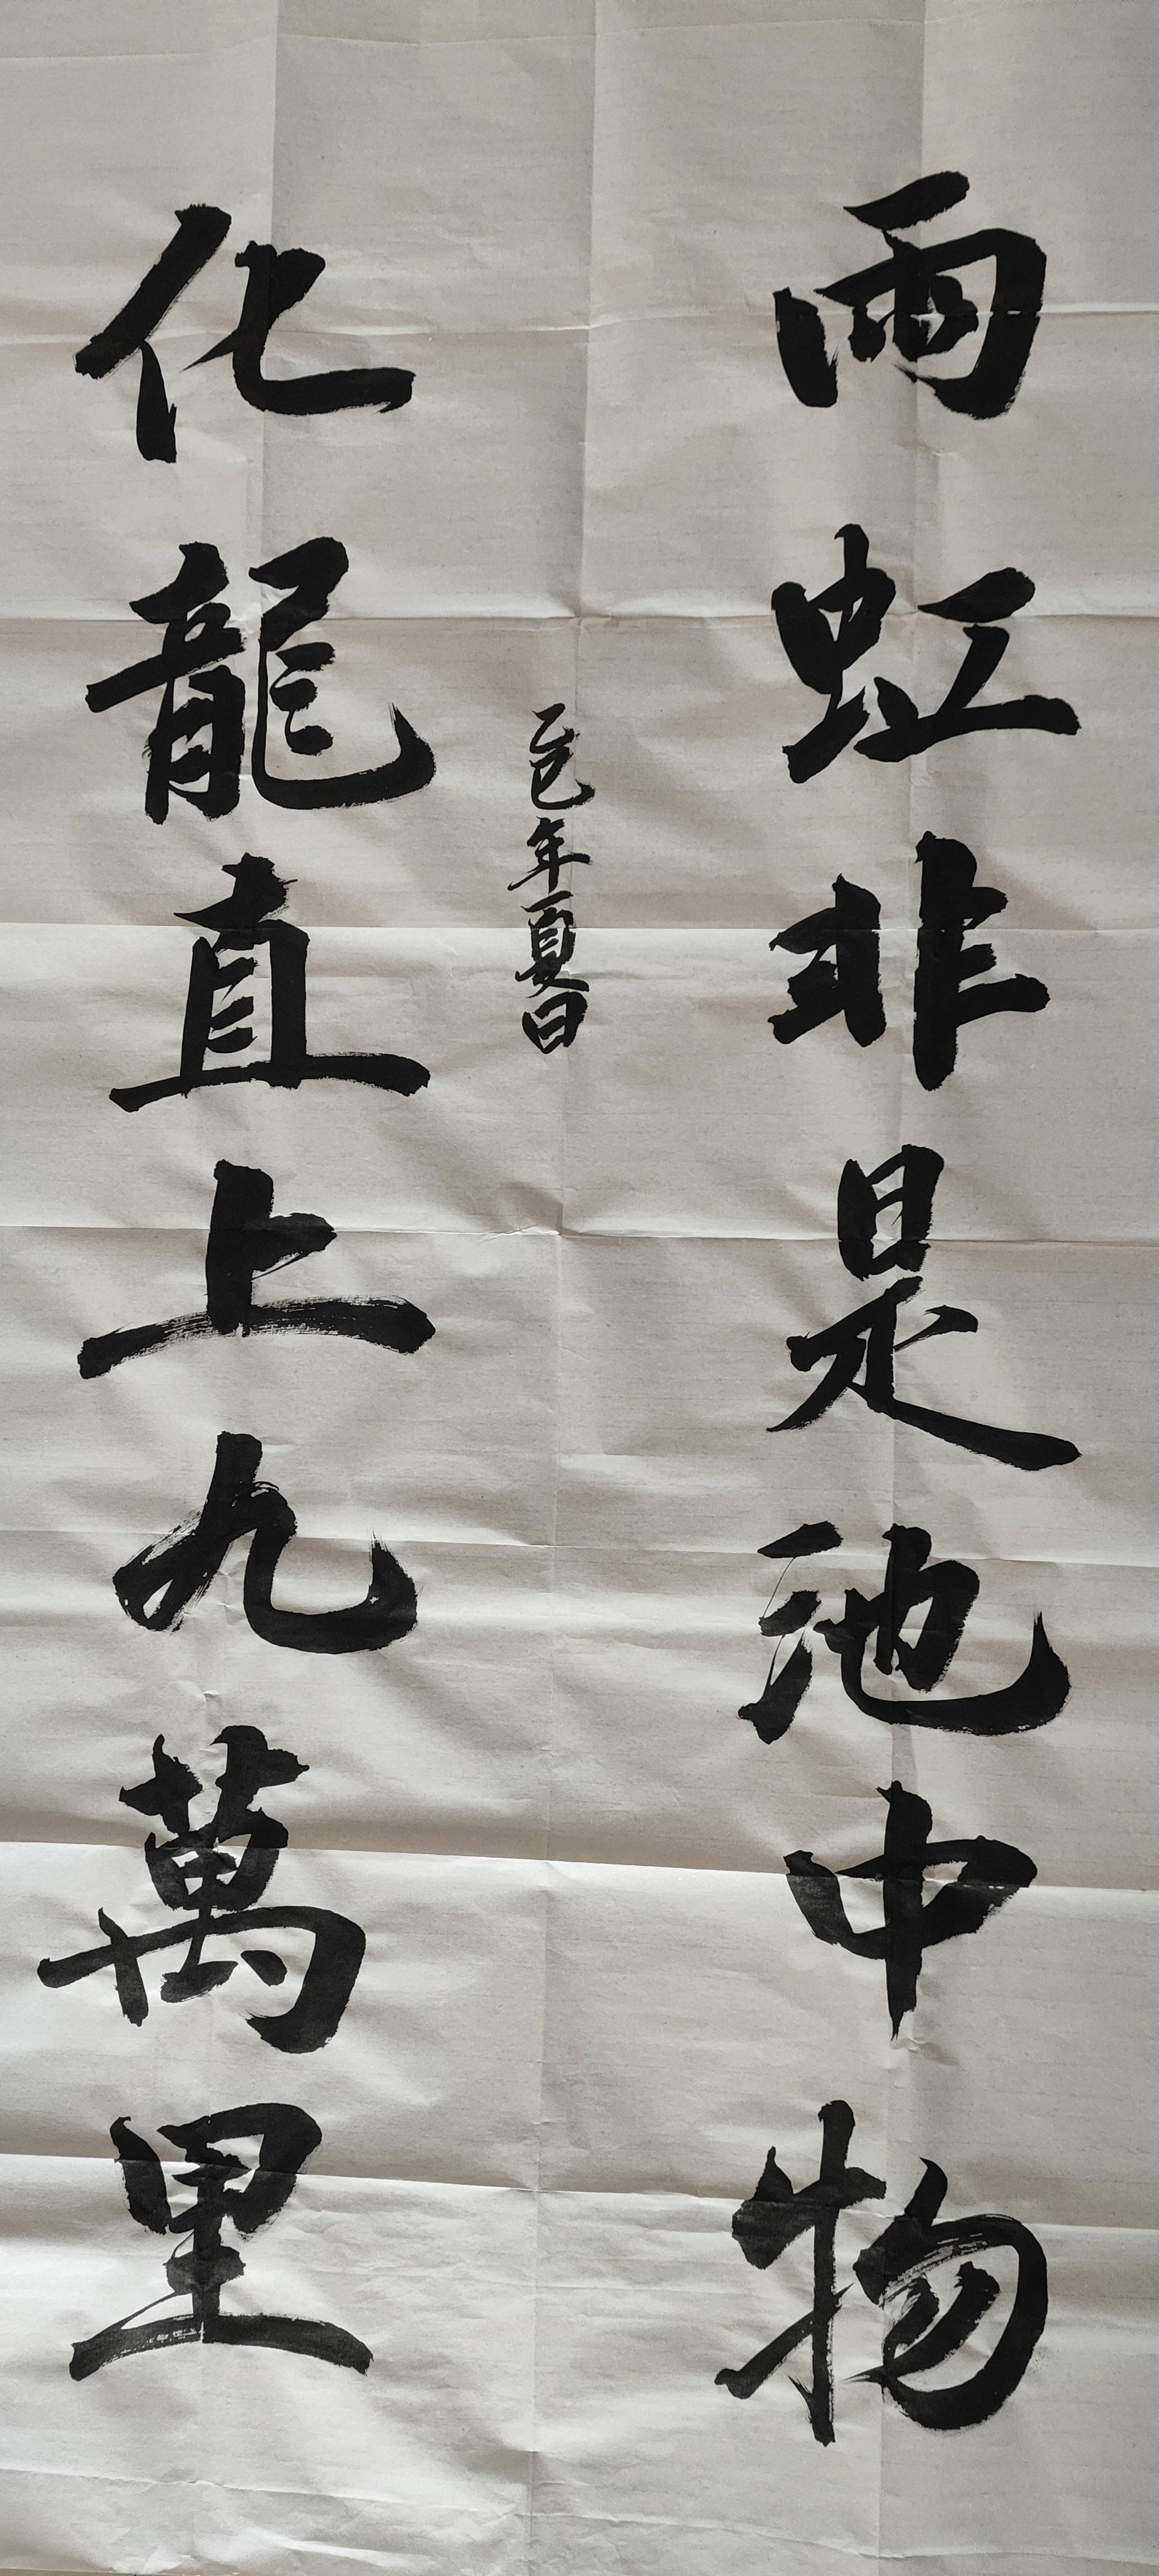 雨虹非是池中物
化龍直上九萬里
乙巳年夏日